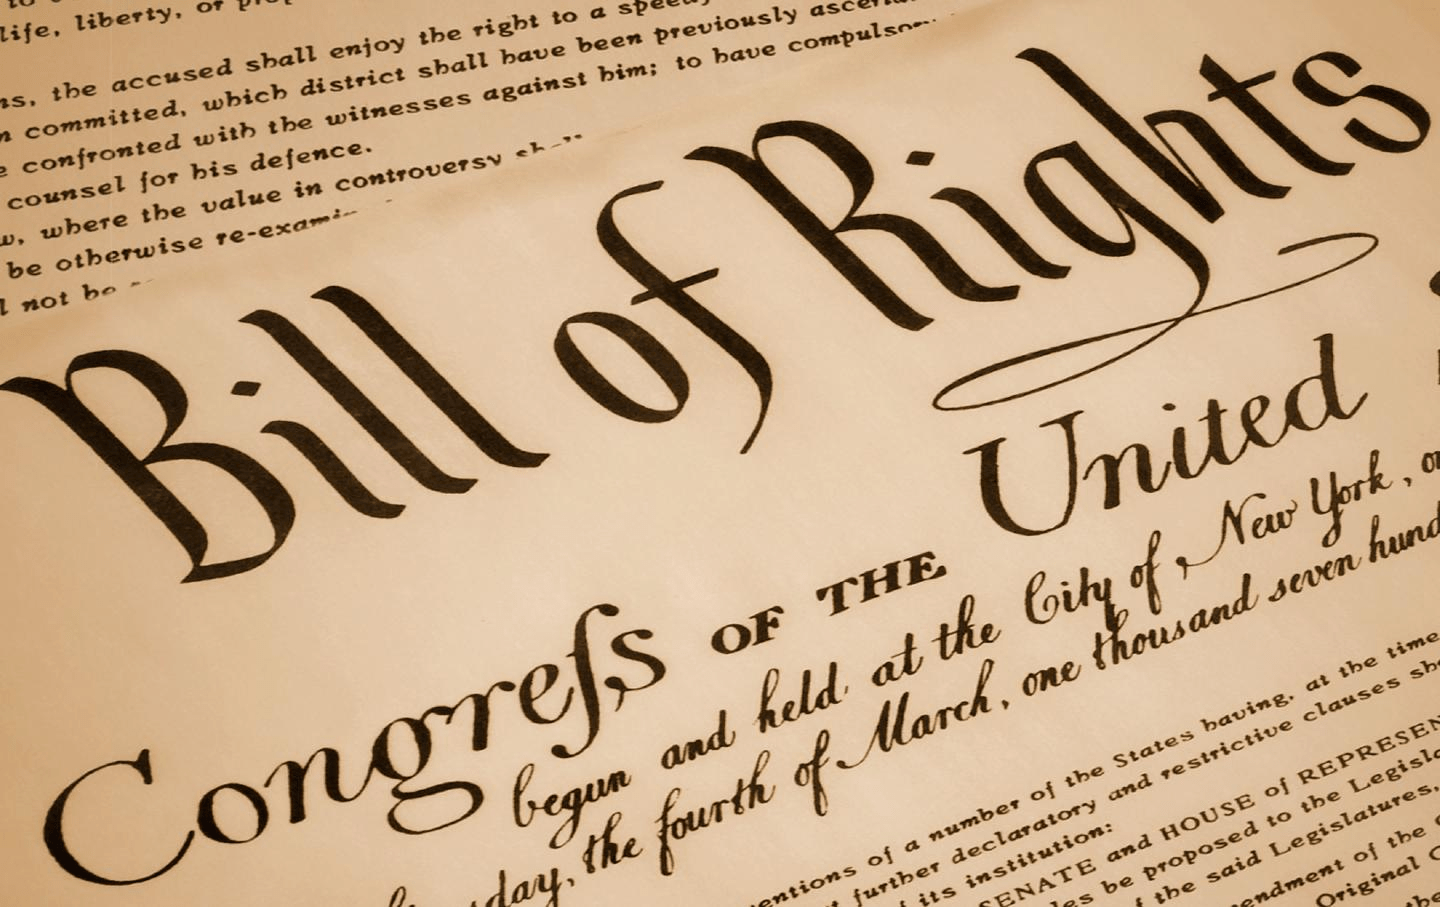 life, liberty, or
the accused shall enjoy the right to a
committed, which district shall have been previously
confronted with the witnesses against him; to have
counsel for his defence.
where the value in controversy
be otherwise
not be
Bill of Rights
Congreſs OF THE United
begun and held at the City of New York,
the fourth of March, one thousand seven
of a number of the States having, at the time
further declaratory and restrictive clauses
its institution:
SENATE and HOUSE of
be proposed to the
the said Legislatures,
of the
Original